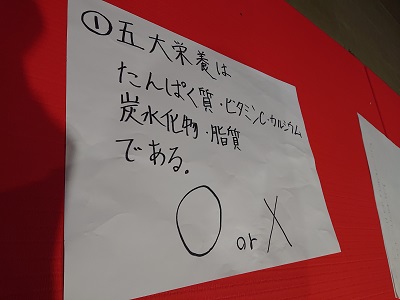 ①五大栄養は
たんぱく質・ビタミンC・カルシウム
炭水化物・脂質
である。
○ or ×